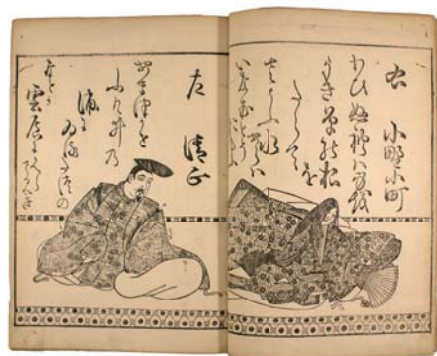 右 小野小町
わひぬれハ身を
うき草の根を
たえて
さそふ水
あらハ
いなむとそおもふ
左 清正
あまつ風
ふけ井乃
浦に
ゐるたつの
なとか
雲居にかへらさるへき